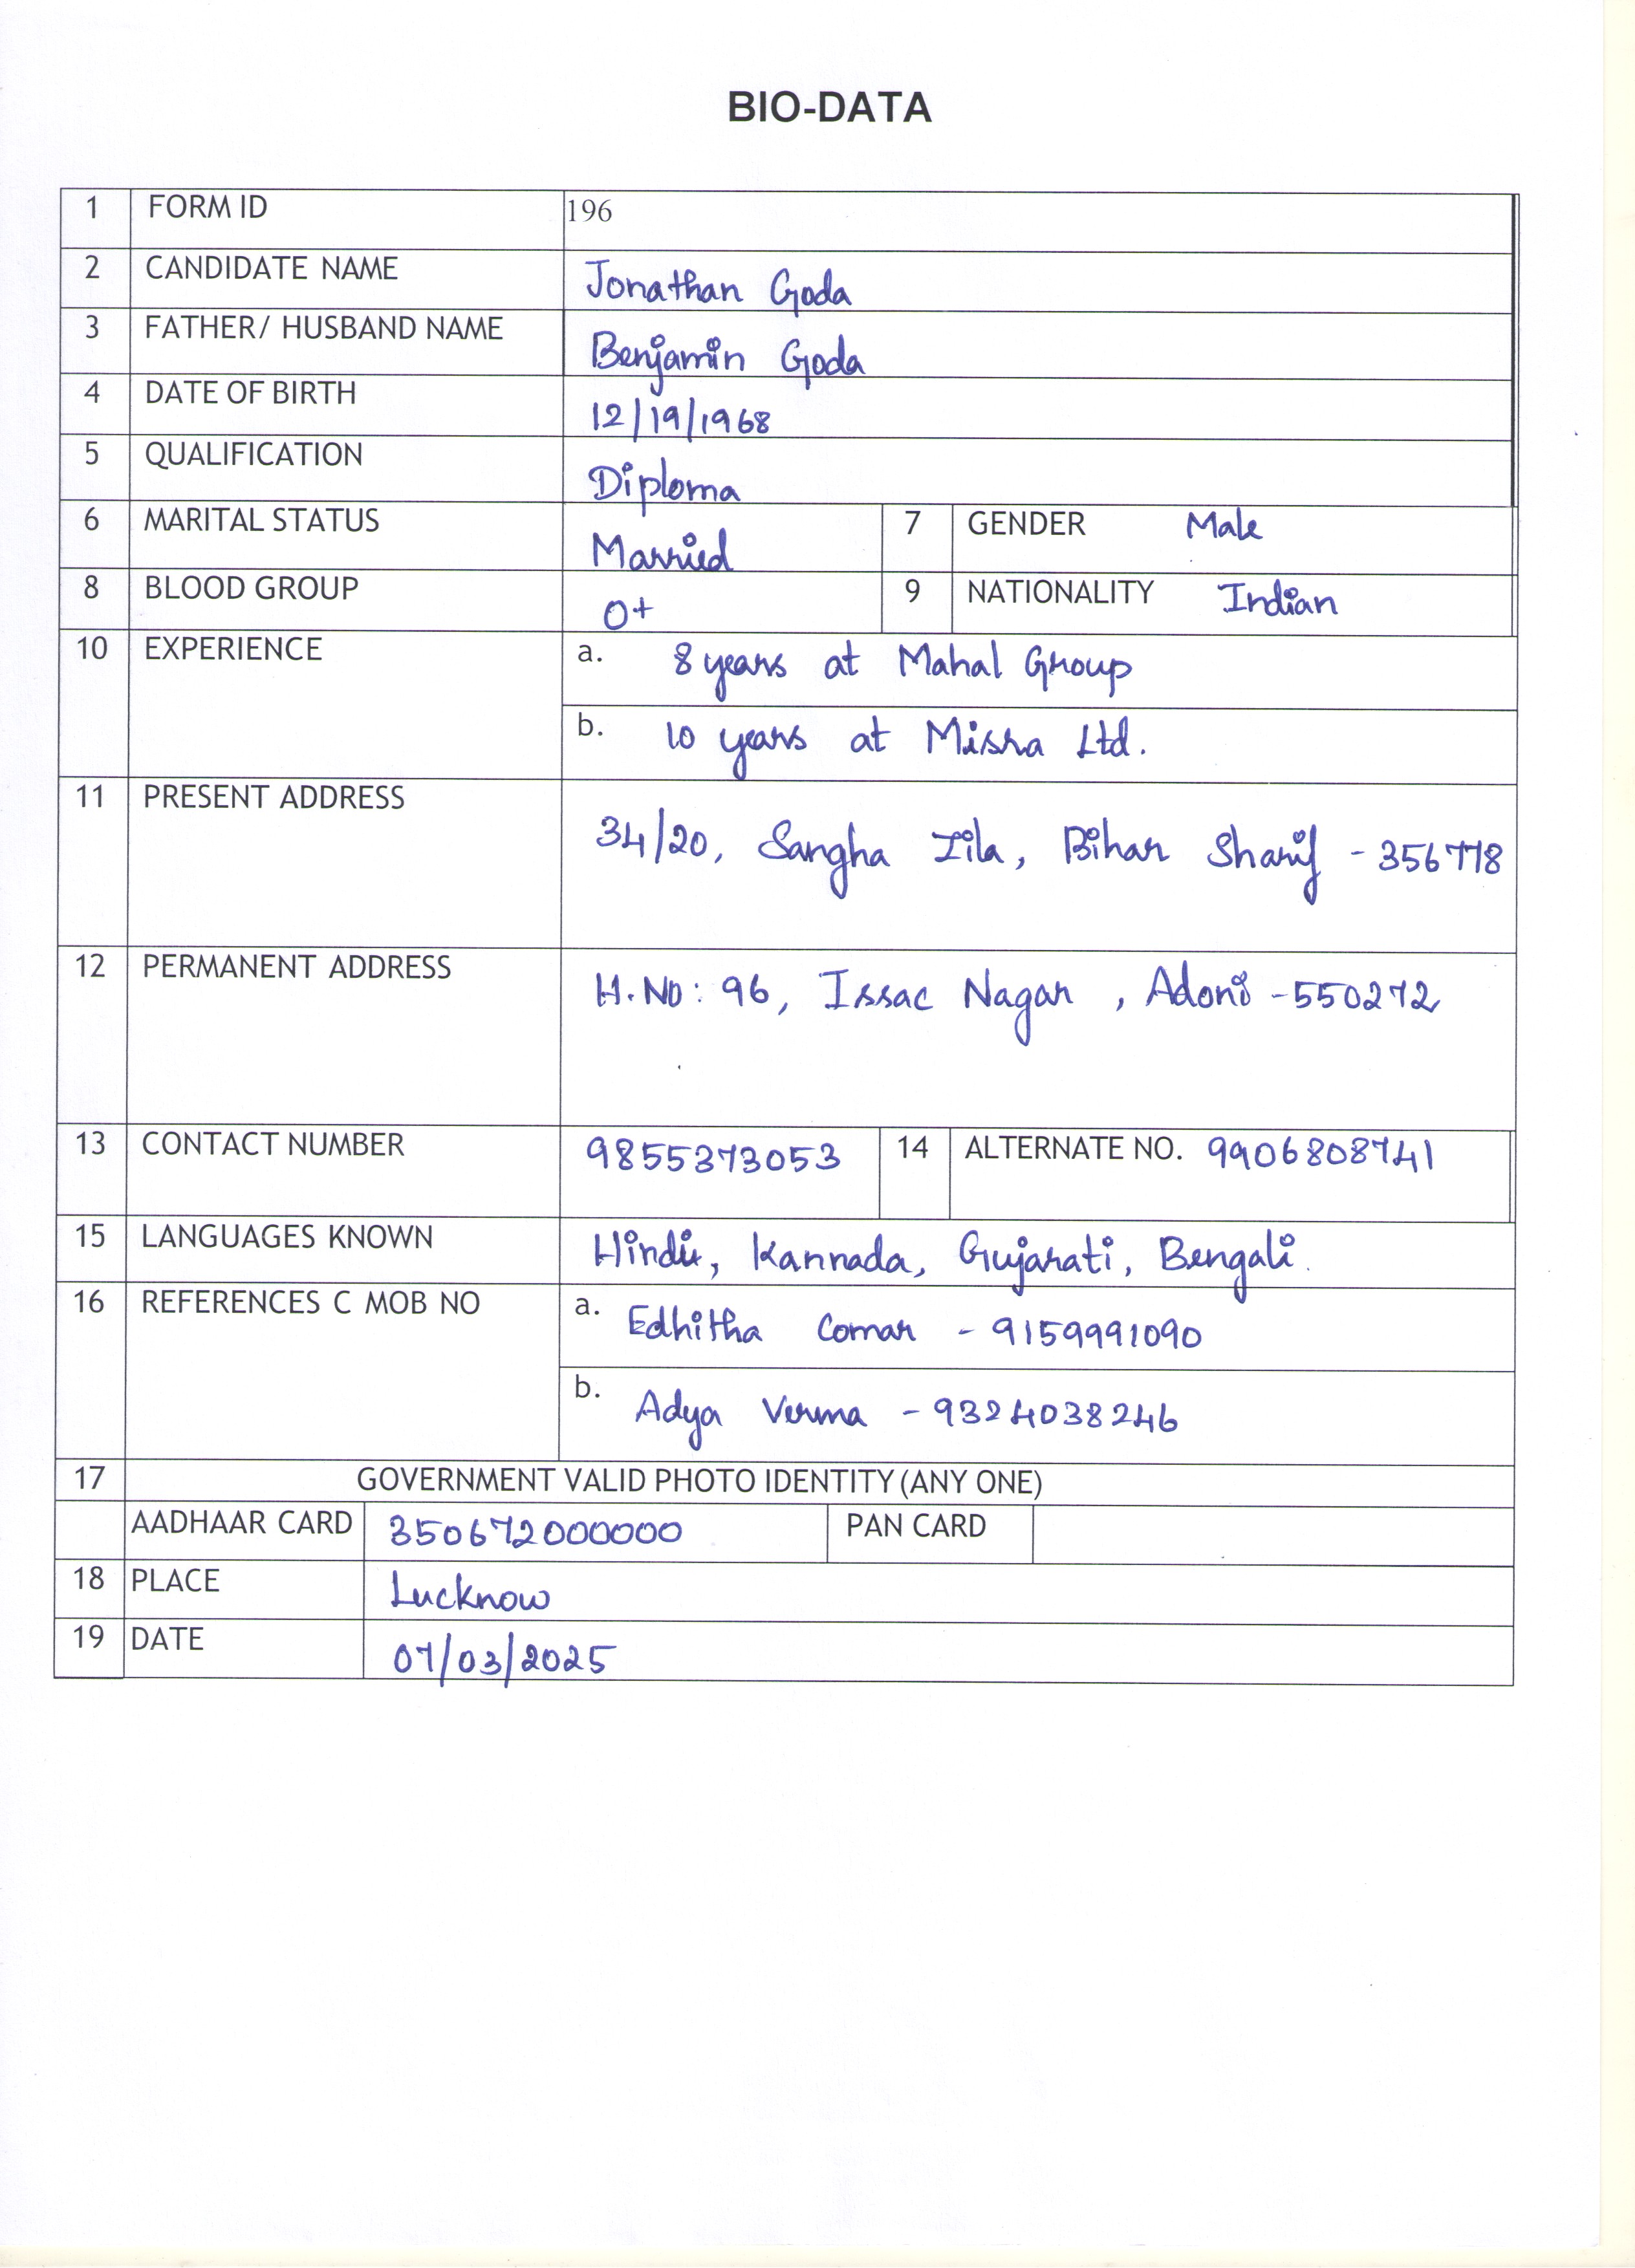 BIO-DATA
1 FORM ID 196
2 CANDIDATE NAME Jonathan Goda
3 FATHER/ HUSBAND NAME Benjamin Goda
4 DATE OF BIRTH 12/19/1968
5 QUALIFICATION Diploma
6 MARITAL STATUS Married 7 GENDER Male
8 BLOOD GROUP O+ 9 NATIONALITY Indian
10 EXPERIENCE a. 8 years at Mahal Group
b. 10 years at Misra Ltd.
11 PRESENT ADDRESS 34/20, Sangha Zila, Bihar Sharif - 356778
12 PERMANENT ADDRESS H.No: 96, Issac Nagar , Adoni - 550272
13 CONTACT NUMBER 9855373053 14 ALTERNATE NO. 9906808741
15 LANGUAGES KNOWN Hindi, Kannada, Gujarati, Bengali.
16 REFERENCES C MOB NO a. Edhitha Comar - 9159991090
b. Adya Verma - 9324038246
17 GOVERNMENT VALID PHOTO IDENTITY (ANY ONE)
AADHAAR CARD 350672000000 PAN CARD
18 PLACE Lucknow
19 DATE 07/03/2025